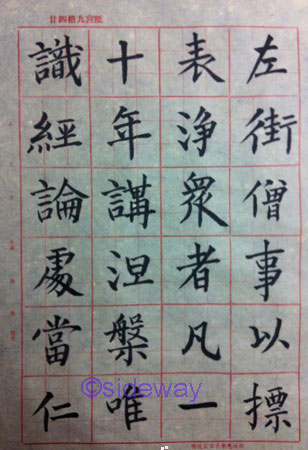 廿四格九宮紙
左街僧事以摽
表浄衆者凡一
十年講涅槃唯
識經論處當仁
©sideway